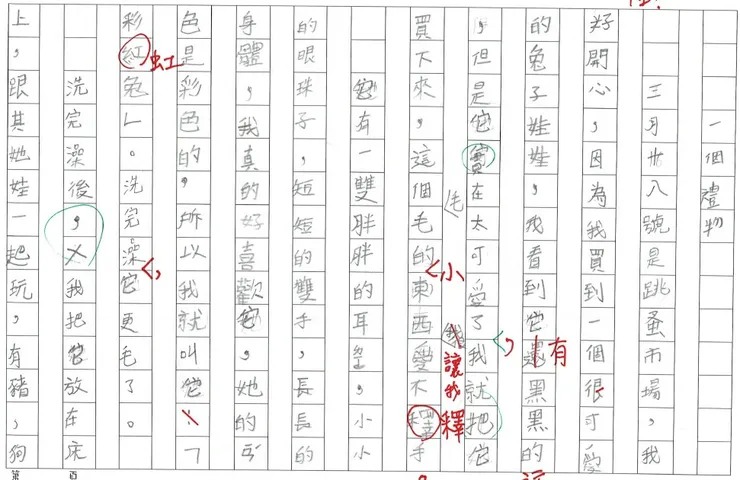 一個禮物
三月廿八號是跳蚤市場，我
好開心，因為我買到一個很可愛
的兔子娃娃，我看到它還黑黑的
有
，但是它實在太可愛了我就把它
，
毛
買下來，這個毛的東西愛不手
小
讓我
釋
它有一雙胖胖的耳朵，小小
的眼珠子，短短的雙手，長長的
身體，我真的好喜歡它，她的
色是彩色的，所以我就叫它「
彩紅兔」。洗完澡它更毛了。
虹
，
洗完澡後，我把它放在床
上，跟其她娃一起玩，有豬，狗
第 頁